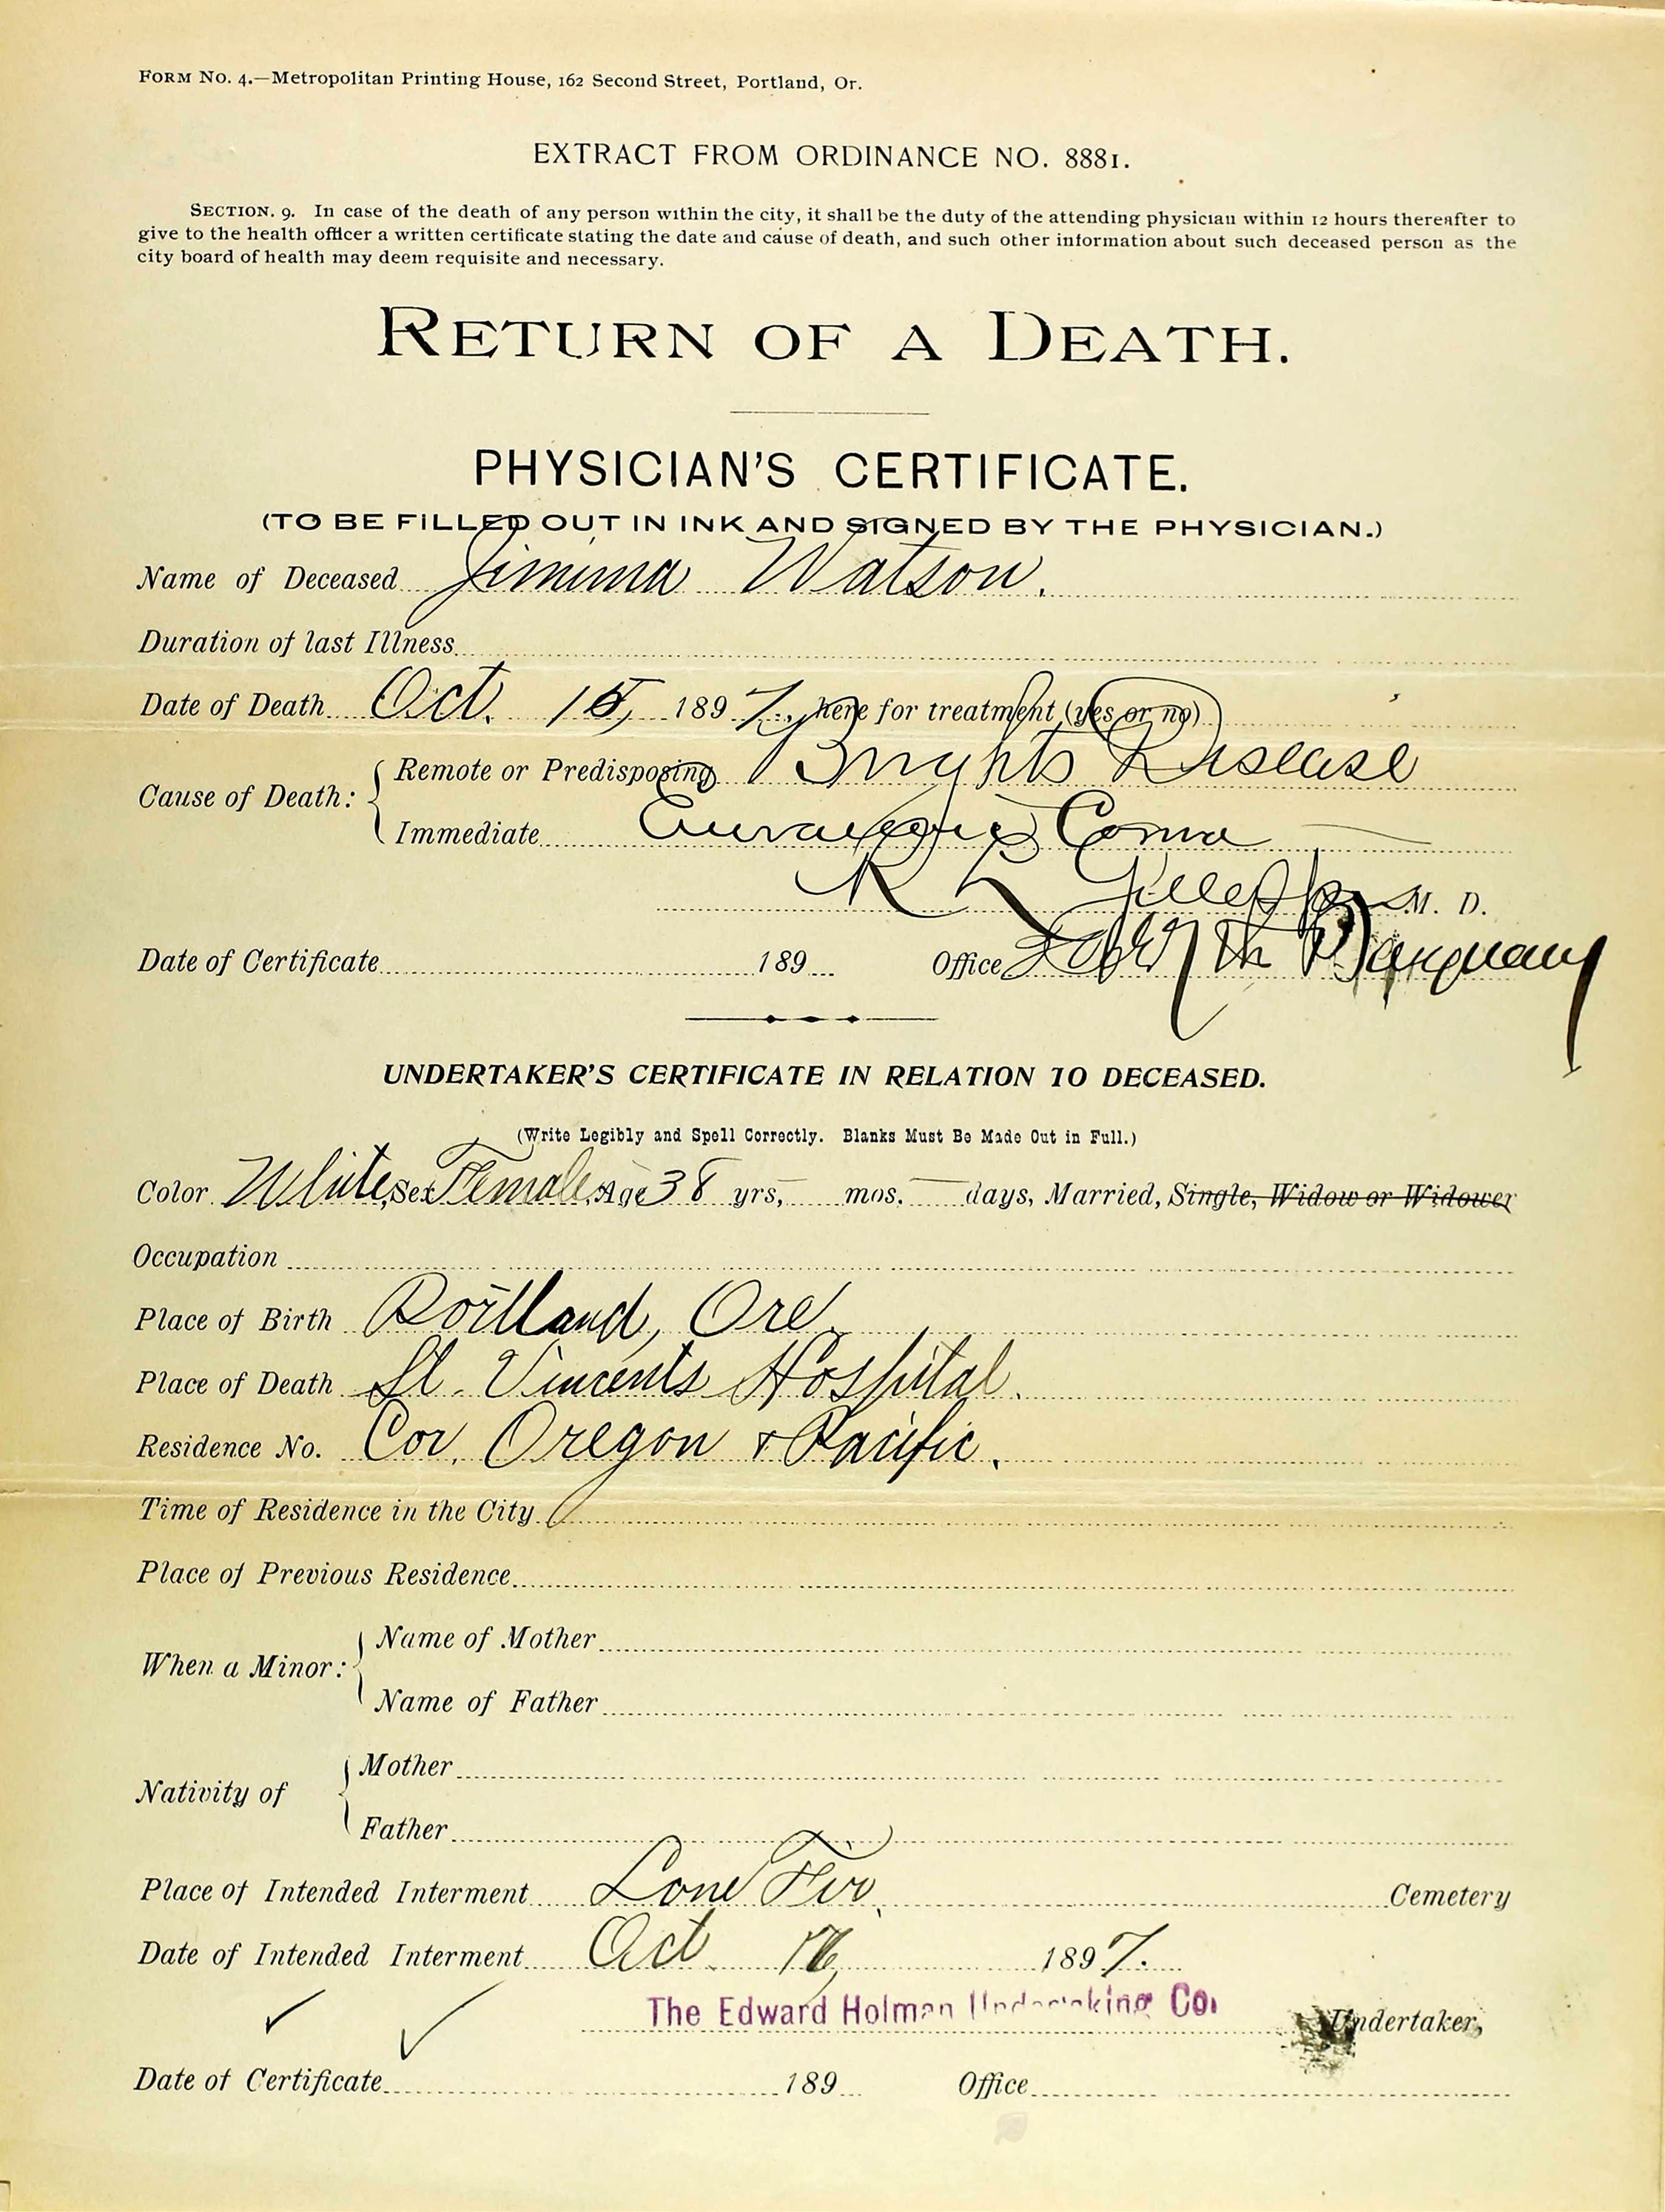 FORM NO. 4.—Metropolitan Printing House, 162 Second Street, Portland, Or.
EXTRACT FROM ORDINANCE NO. 8881.
SECTION. 9. In case of the death of any person within the city, it shall be the duty of the attending physician within 12 hours thereafter to
give to the health officer a written certificate stating the date and cause of death, and such other information about such deceased person as the
city board of health may deem requisite and necessary.
RETURN OF A DEATH.
PHYSICIAN'S CERTIFICATE.
(TO BE FILLED OUT IN INK AND SIGNED BY THE PHYSICIAN.)
Name of Deceased Jimima Watson.
Duration of last Illness
Date of Death Oct. 15, 1897., here for treatment (yes or no)
Cause of Death: Remote or Predisposing Brights Disease
Immediate Coma
R L M. D.
Date of Certificate 189 Office
UNDERTAKER'S CERTIFICATE IN RELATION TO DECEASED.
(Write Legibly and Spell Correctly. Blanks Must Be Made Out in Full.)
Color White, Sex Female, Age 38 yrs, — mos. — days, Married, Single, Widow or Widower
Occupation
Place of Birth Portland, Ore.
Place of Death St. Vincents Hospital.
Residence No. Cor. Oregon & Pacific.
Time of Residence in the City
Place of Previous Residence
When a Minor: Name of Mother
Name of Father
Nativity of Mother
Father
Place of Intended Interment Lone Fir. Cemetery
Date of Intended Interment Oct. 1897.
The Edward Holman Undertaking Co. Undertaker,
Date of Certificate 189 Office